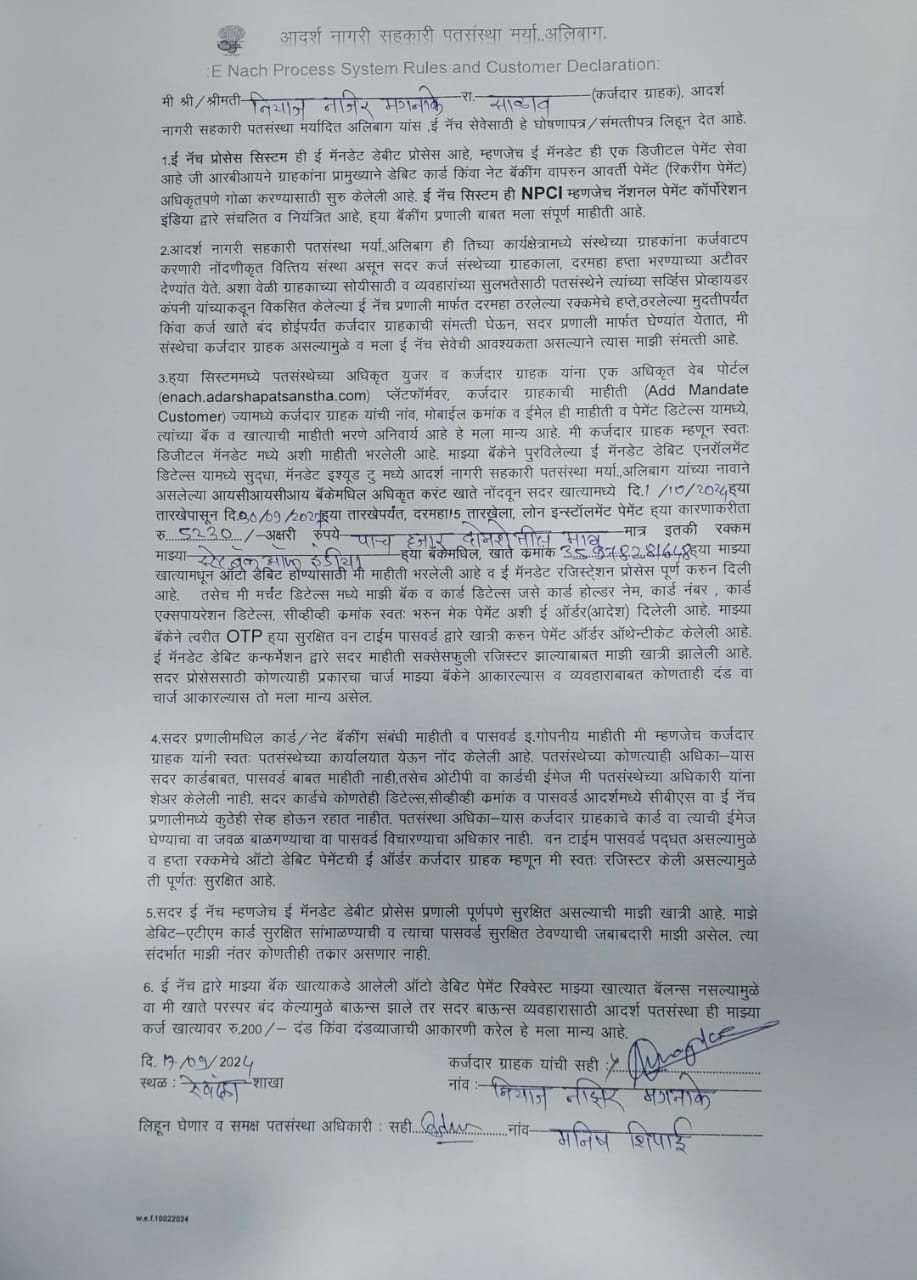 आदर्श नागरी सहकारी पतसंस्था मर्या.,अलिबाग.
:E Nach Process System Rules and Customer Declaration:
मी श्री/श्रीमती नियाज नजिर मगनाके रा. साळाव (कर्जदार ग्राहक), आदर्श
नागरी सहकारी पतसंस्था मर्यादित अलिबाग यांस ,ई नॅच सेवेसाठी हे घोषणापत्र/संमत्तीपत्र लिहून देत आहे.
1.ई नॅच प्रोसेस सिस्टिम ही ई मॅनडेट डेबीट प्रोसेस आहे, म्हणजेच ई मॅनडेट ही एक डिजीटल पेमेंट सेवा
आहे जी आरबीआयने ग्राहकांना प्रामुख्याने डेबिट कार्ड किंवा नेट बॅकींग वापरुन आवर्ती पेमेंट (रिकरींग पेमेंट)
अधिकृतपणे गोळा करण्यासाठी सुरु केलेली आहे. ई नॅच सिस्टिम ही NPCI म्हणजेच नॅशनल पेमेंट कॉर्पोरेशन
इंडिया द्वारे संचलित व नियंत्रित आहे, हया बॅकींग प्रणाली बाबत मला संपूर्ण माहीती आहे.
2.आदर्श नागरी सहकारी पतसंस्था मर्या.,अलिबाग ही तिच्या कार्यक्षेत्रामध्ये संस्थेच्या ग्राहकांना कर्जवाटप
करणारी नोंदणीकृत वित्तिय संस्था असून सदर कर्ज संस्थेच्या ग्राहकाला, दरमहा हप्ता भरण्याच्या अटीवर
देण्यांत येते. अशा वेळी ग्राहकाच्या सोयीसाठी व व्यवहारांच्या सुलभतेसाठी पतसंस्थेने त्यांच्या सर्व्हिस प्रोव्हायडर
कंपनी यांच्याकडून विकसित केलेल्या ई नॅच प्रणाली मार्फत दरमहा ठरलेल्या रक्कमेचे हप्ते,ठरलेल्या मुदतीपर्यंत
किंवा कर्ज खाते बंद होईपर्यंत कर्जदार ग्राहकाची संमत्ती घेऊन, सदर प्रणाली मार्फत घेण्यांत येतात, मी
संस्थेचा कर्जदार ग्राहक असल्यामुळे व मला ई नॅच सेवेची आवश्यकता असल्याने त्यास माझी संमत्ती आहे.
3.हया सिस्टिममध्ये पतसंस्थेच्या अधिकृत युजर व कर्जदार ग्राहक यांना एक अधिकृत वेब पोर्टल
(enach.adarshapatsanstha.com) प्लॅटफॉर्मवर, कर्जदार ग्राहकाची माहीती (Add Mandate
Customer) ज्यामध्ये कर्जदार ग्राहक यांची नांव, मोबाईल क्रमांक व ईमेल ही माहीती व पेमेंट डिटेल्स यामध्ये,
त्यांच्या बॅक व खात्याची माहीती भरणे अनिवार्य आहे हे मला मान्य आहे. मी कर्जदार ग्राहक म्हणून स्वतः
डिजीटल मॅनडेट मध्ये अशी माहीती भरलेली आहे. माझ्या बॅकेने पुरविलेल्या ई मॅनडेट डेबिट एनरॉलमेंट
डिटेल्स यामध्ये सुद्धा, मॅनडेट इश्यूड टु मध्ये आदर्श नागरी सहकारी पतसंस्था मर्या.,अलिबाग यांच्या नावाने
असलेल्या आयसीआयसीआय बॅकेमधिल अधिकृत करंट खाते नोंदवून सदर खात्यामध्ये दि.1/10/2024हया
तारखेपासून दि.30/09/2027हया तारखेपर्यंत, दरमहा15 तारखेला, लोन इन्स्टॉलमेंट पेमेंट हया कारणाकरीता
रु.5230/-अक्षरी रुपये पाच हजार दोनशे तीस मात्र मात्र इतकी रक्कम
माझ्या स्टेट बँक ऑफ इंडिया हया बॅकेमधिल, खाते क्रमांक हया माझ्या
खात्यामधून ऑटो डेबिट होण्यांसाठी मी माहीती भरलेली आहे व ई मॅनडेट रजिस्ट्रेशन प्रोसेस पूर्ण करुन दिली
आहे. तसेच मी मर्चंट डिटेल्स मध्ये माझी बॅक व कार्ड डिटेल्स जसे कार्ड होल्डर नेम, कार्ड नंबर , कार्ड
एक्सपायरेशन डिटेल्स, सीव्हीव्ही क्रमांक स्वतः भरुन मेक पेमेंट अशी ई ऑर्डर(आदेश) दिलेली आहे. माझ्या
बॅकेने त्वरीत OTP हया सुरक्षित वन टाईम पासवर्ड द्वारे खात्री करुन पेमेंट ऑर्डर ऑथेन्टीकेट केलेली आहे.
ई मॅनडेट डेबिट कन्फर्मेशन द्वारे सदर माहीती सक्सेसफुली रजिस्टर झाल्याबाबत माझी खात्री झालेली आहे.
सदर प्रोसेससाठी कोणत्याही प्रकारचा चार्ज माझ्या बॅकेने आकारल्यास व व्यवहाराबाबत कोणताही दंड वा
चार्ज आकारल्यास तो मला मान्य असेल.
4.सदर प्रणालीमधिल कार्ड/नेट बॅकींग संबंधी माहीती व पासवर्ड इ.गोपनीय माहीती मी म्हणजेच कर्जदार
ग्राहक यांनी स्वतः पतसंस्थेच्या कार्यालयात येऊन नोंद केलेली आहे. पतसंस्थेच्या कोणत्याही अधिका-यास
सदर कार्डबाबत, पासवर्ड बाबत माहीती नाही,तसेच ओटीपी वा कार्डची ईमेज मी पतसंस्थेच्या अधिकारी यांना
शेअर केलेली नाही. सदर कार्डचे कोणतेही डिटेल्स,सीव्हीव्ही क्रमांक व पासवर्ड आदर्शमध्ये सीबीएस वा ई नॅच
प्रणालीमध्ये कुठेही सेव्ह होऊन रहात नाहीत. पतसंस्था अधिका-यास कर्जदार ग्राहकाचे कार्ड वा त्याची ईमेज
घेण्याचा वा जवळ बाळगण्याचा वा पासवर्ड विचारण्याचा अधिकार नाही. वन टाईम पासवर्ड पद्धत असल्यामुळे
व हप्ता रक्कमेचे ऑटो डेबिट पेमेंटची ई ऑर्डर कर्जदार ग्राहक म्हणून मी स्वतः रजिस्टर केली असल्यामुळे
ती पूर्णतः सुरक्षित आहे.
5.सदर ई नॅच म्हणजेच ई मॅनडेट डेबीट प्रोसेस प्रणाली पूर्णपणे सुरक्षित असल्याची माझी खात्री आहे. माझे
डेबिट-एटीएम कार्ड सुरक्षित सांभाळण्याची व त्याचा पासवर्ड सुरक्षित ठेवण्याची जबाबदारी माझी असेल. त्या
संदर्भात माझी नंतर कोणतीही तक्रार असणार नाही.
6. ई नॅच द्वारे माझ्या बॅक खात्याकडे आलेली ऑटो डेबिट पेमेंट रिक्वेस्ट माझ्या खात्यात बॅलन्स नसल्यामुळे
वा मी खाते परस्पर बंद केल्यामुळे बाऊन्स झाले तर सदर बाऊन्स व्यवहारासाठी आदर्श पतसंस्था ही माझ्या
कर्ज खात्यावर रु.200/- दंड किंवा दंडव्याजाची आकारणी करेल हे मला मान्य आहे.
दि. 17/09/2024 कर्जदार ग्राहक यांची सही :
स्थळ : रेवदंडा शाखा नांव : नियाज नझिर मगनाके
लिहून घेणार व समक्ष पतसंस्था अधिकारी : सही नांव मनिष शिपाई
w.e.f.10022024